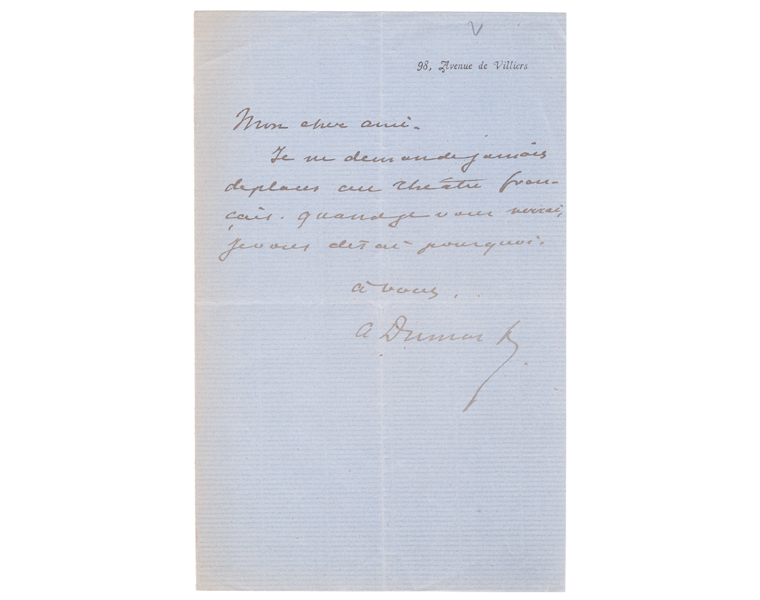 98, Avenue de Villiers
Mon cher ami.
Je ne demande jamais
de places au théâtre fran-
çais. quand je vous verrai,
je vous dirai pourquoi.
à vous.
A Dumas f